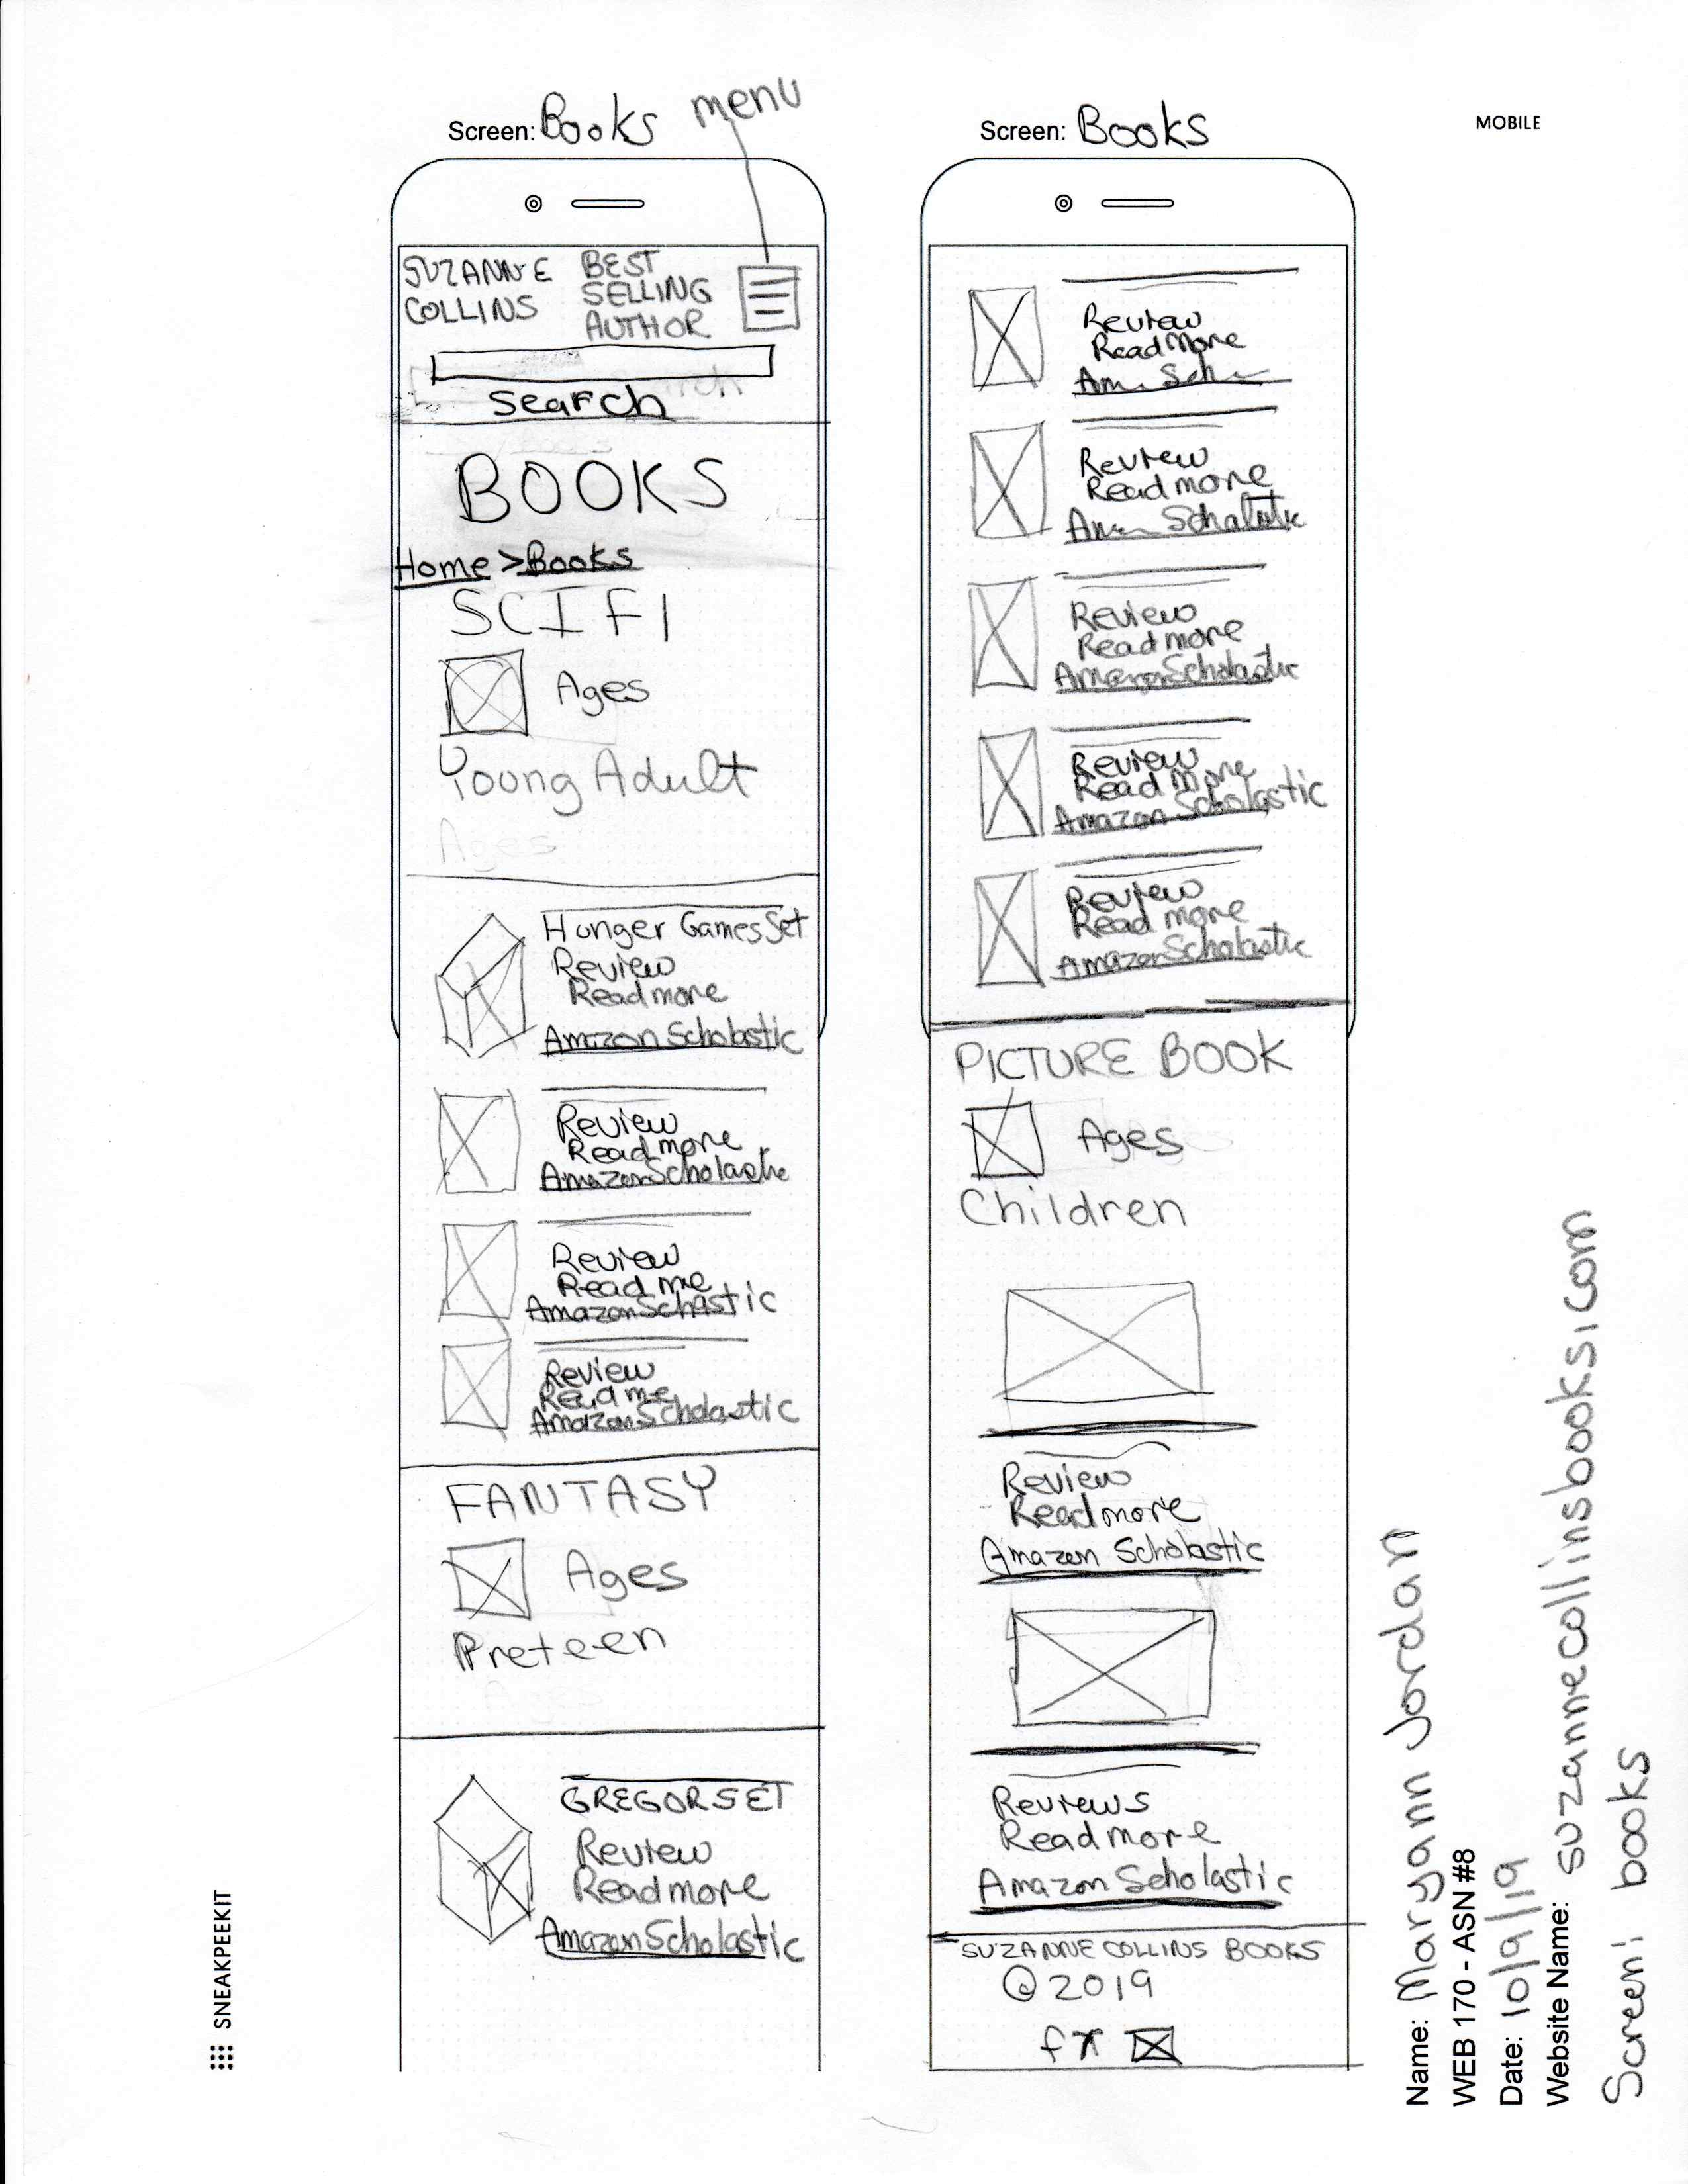 Screen: Books menu
SUZANNE COLLINS
BEST SELLING AUTHOR
Search
BOOKS
Home > Books
SCI FI
Ages
Young Adult
Ages
Hunger Games Set
Review
Read more
Amazon Scholastic
Review
Read more
Amazon Scholastic
Review
Read me
Amazon Schastic
Review
Read me
Amazon Scholastic
FANTASY
Ages
Preteen
GREGOR SET
Review
Read more
Amazon Scholastic
Screen: Books
MOBILE
Review
Read More
Review
Read more
Review
Read more
Amazon Scholastic
Review
Read More
Amazon Scholastic
Review
Read more
Amazon Scholastic
PICTURE BOOK
Ages
Children
Review
Read more
Amazon Scholastic
Reviews
Read more
Amazon Scholastic
SUZANNE COLLINS BOOKS
© 2019
f
SNEAKPEEKIT
Name: Maryann Jordan
WEB 170 - ASN #8
Date: 10/9/19
Website Name: suzannecollinsbooks.com
Screen: books